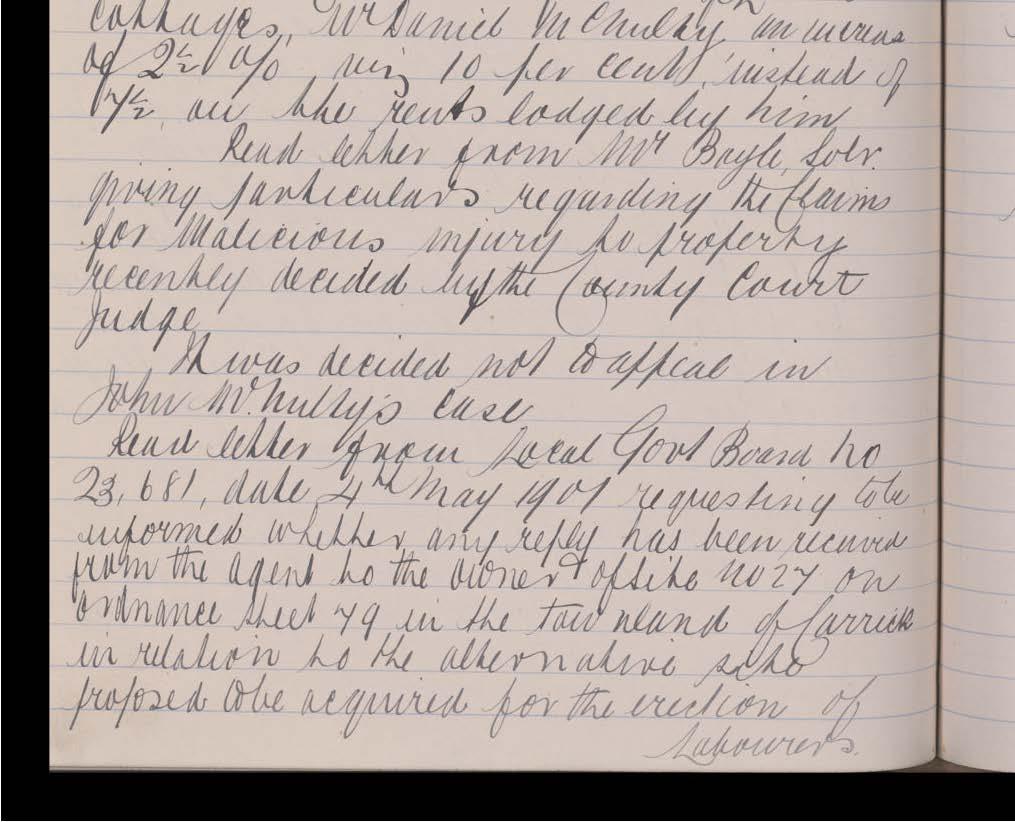 cottages, Mr Daniel McNulty an increas
of 2½ %, viz 10 per cent, instead of
7½, on the rents lodged by him
Read letter from Mr Boyle, Solr.
giving particulars regarding the Claims
for Malicious injury to property
recently decided by the County Court
Judge
It was decided not to appeal in
John McNulty's case
Read letter from Local Govt Board no
23,681, date 4th May 1901 requesting to be
informed whether any reply has been received
from the agent to the owner of site no 27 on
ordnance sheet 79 in the townland of Carrick
in relation to the alternative site
proposed to be acquired for the erection of
Labourers.